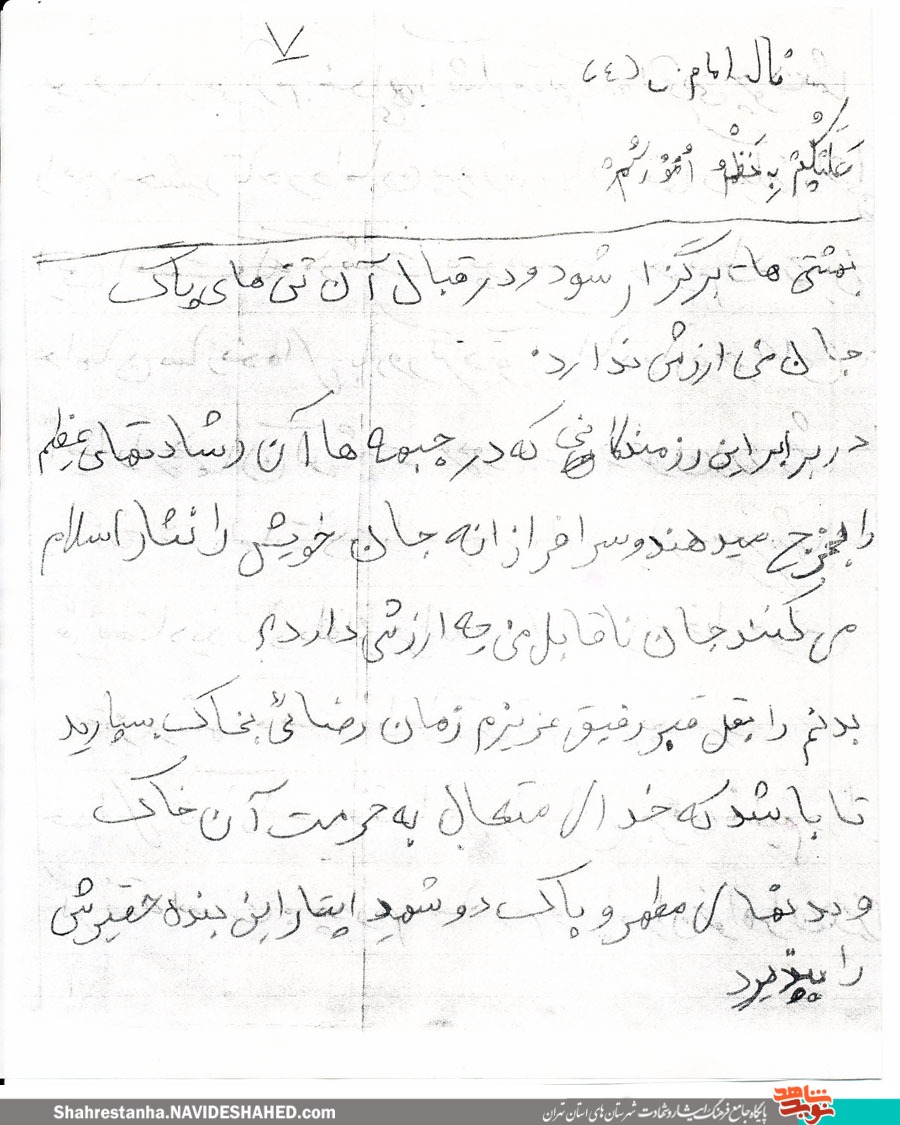 ۷
قال امام (ع)
عَلَیْکُمْ بِهِ نَظْمِ اُمُورِکُمْ
بهشتی ها برگزار شود و در قبال آن تن های پاک
جان من ارزش ندارد.
در برابر این رزمندگانی که در جبهه ها آن رشادتهای عظیم
را بخرج میدهند و سرافرازانه جان خویش را نثار اسلام
می کنند جان ناقابل من چه ارزشی دارد؟
بدنم را بغل قبر رفیق عزیزم زمان رضائی بخاک بسپارید
تا باشد که خدای متعال به حرمت آن خاک
و بدنهای مطهر و پاک دو شهید ایثار این بنده حقیرش
را بپذیرد
Shahrestanha.NAVIDESHAHED.com
پایگاه جامع فرهنگ ایثار و شهادت شهرستان های استان تهران
نوید شاهد